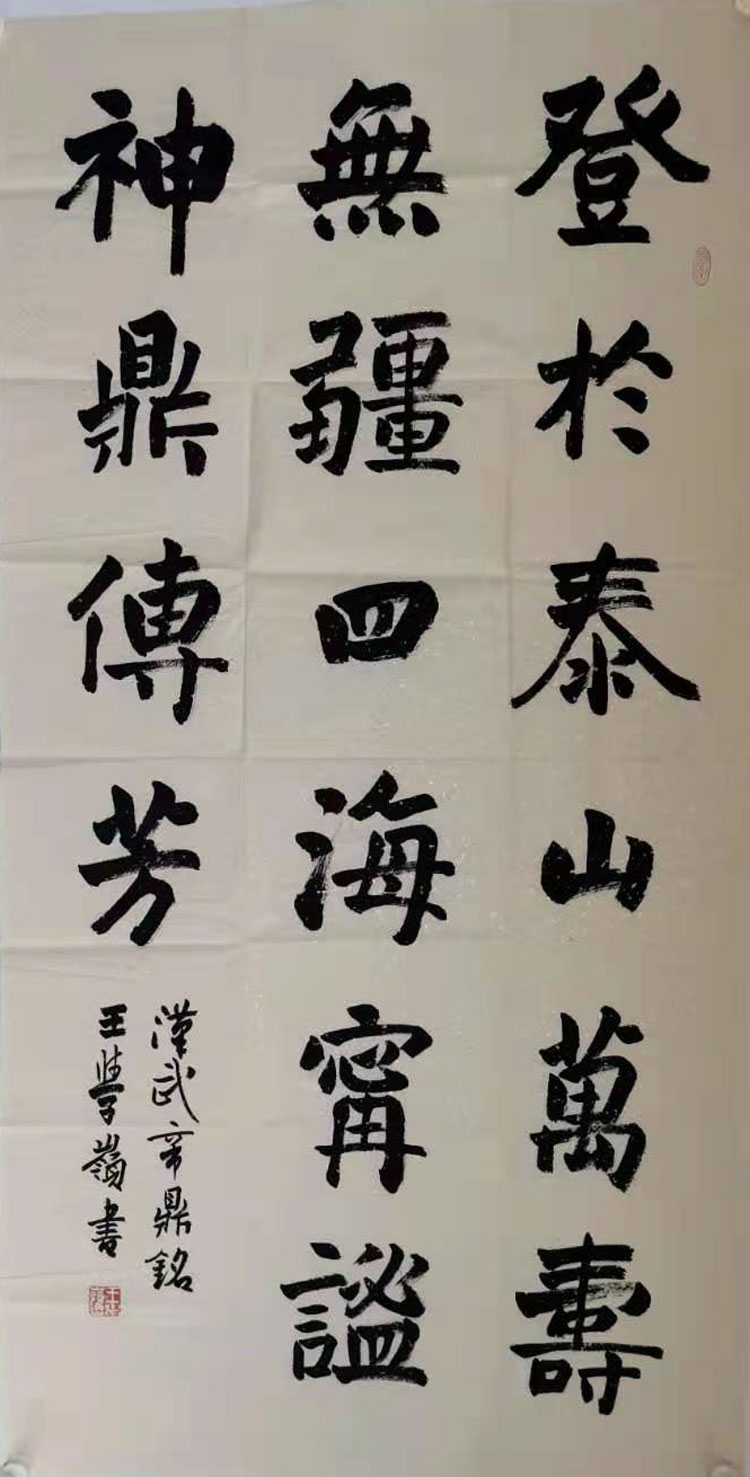 登於泰山萬壽
無疆四海寧謐
神鼎傳芳
漢武帝鼎銘
王學嶺書